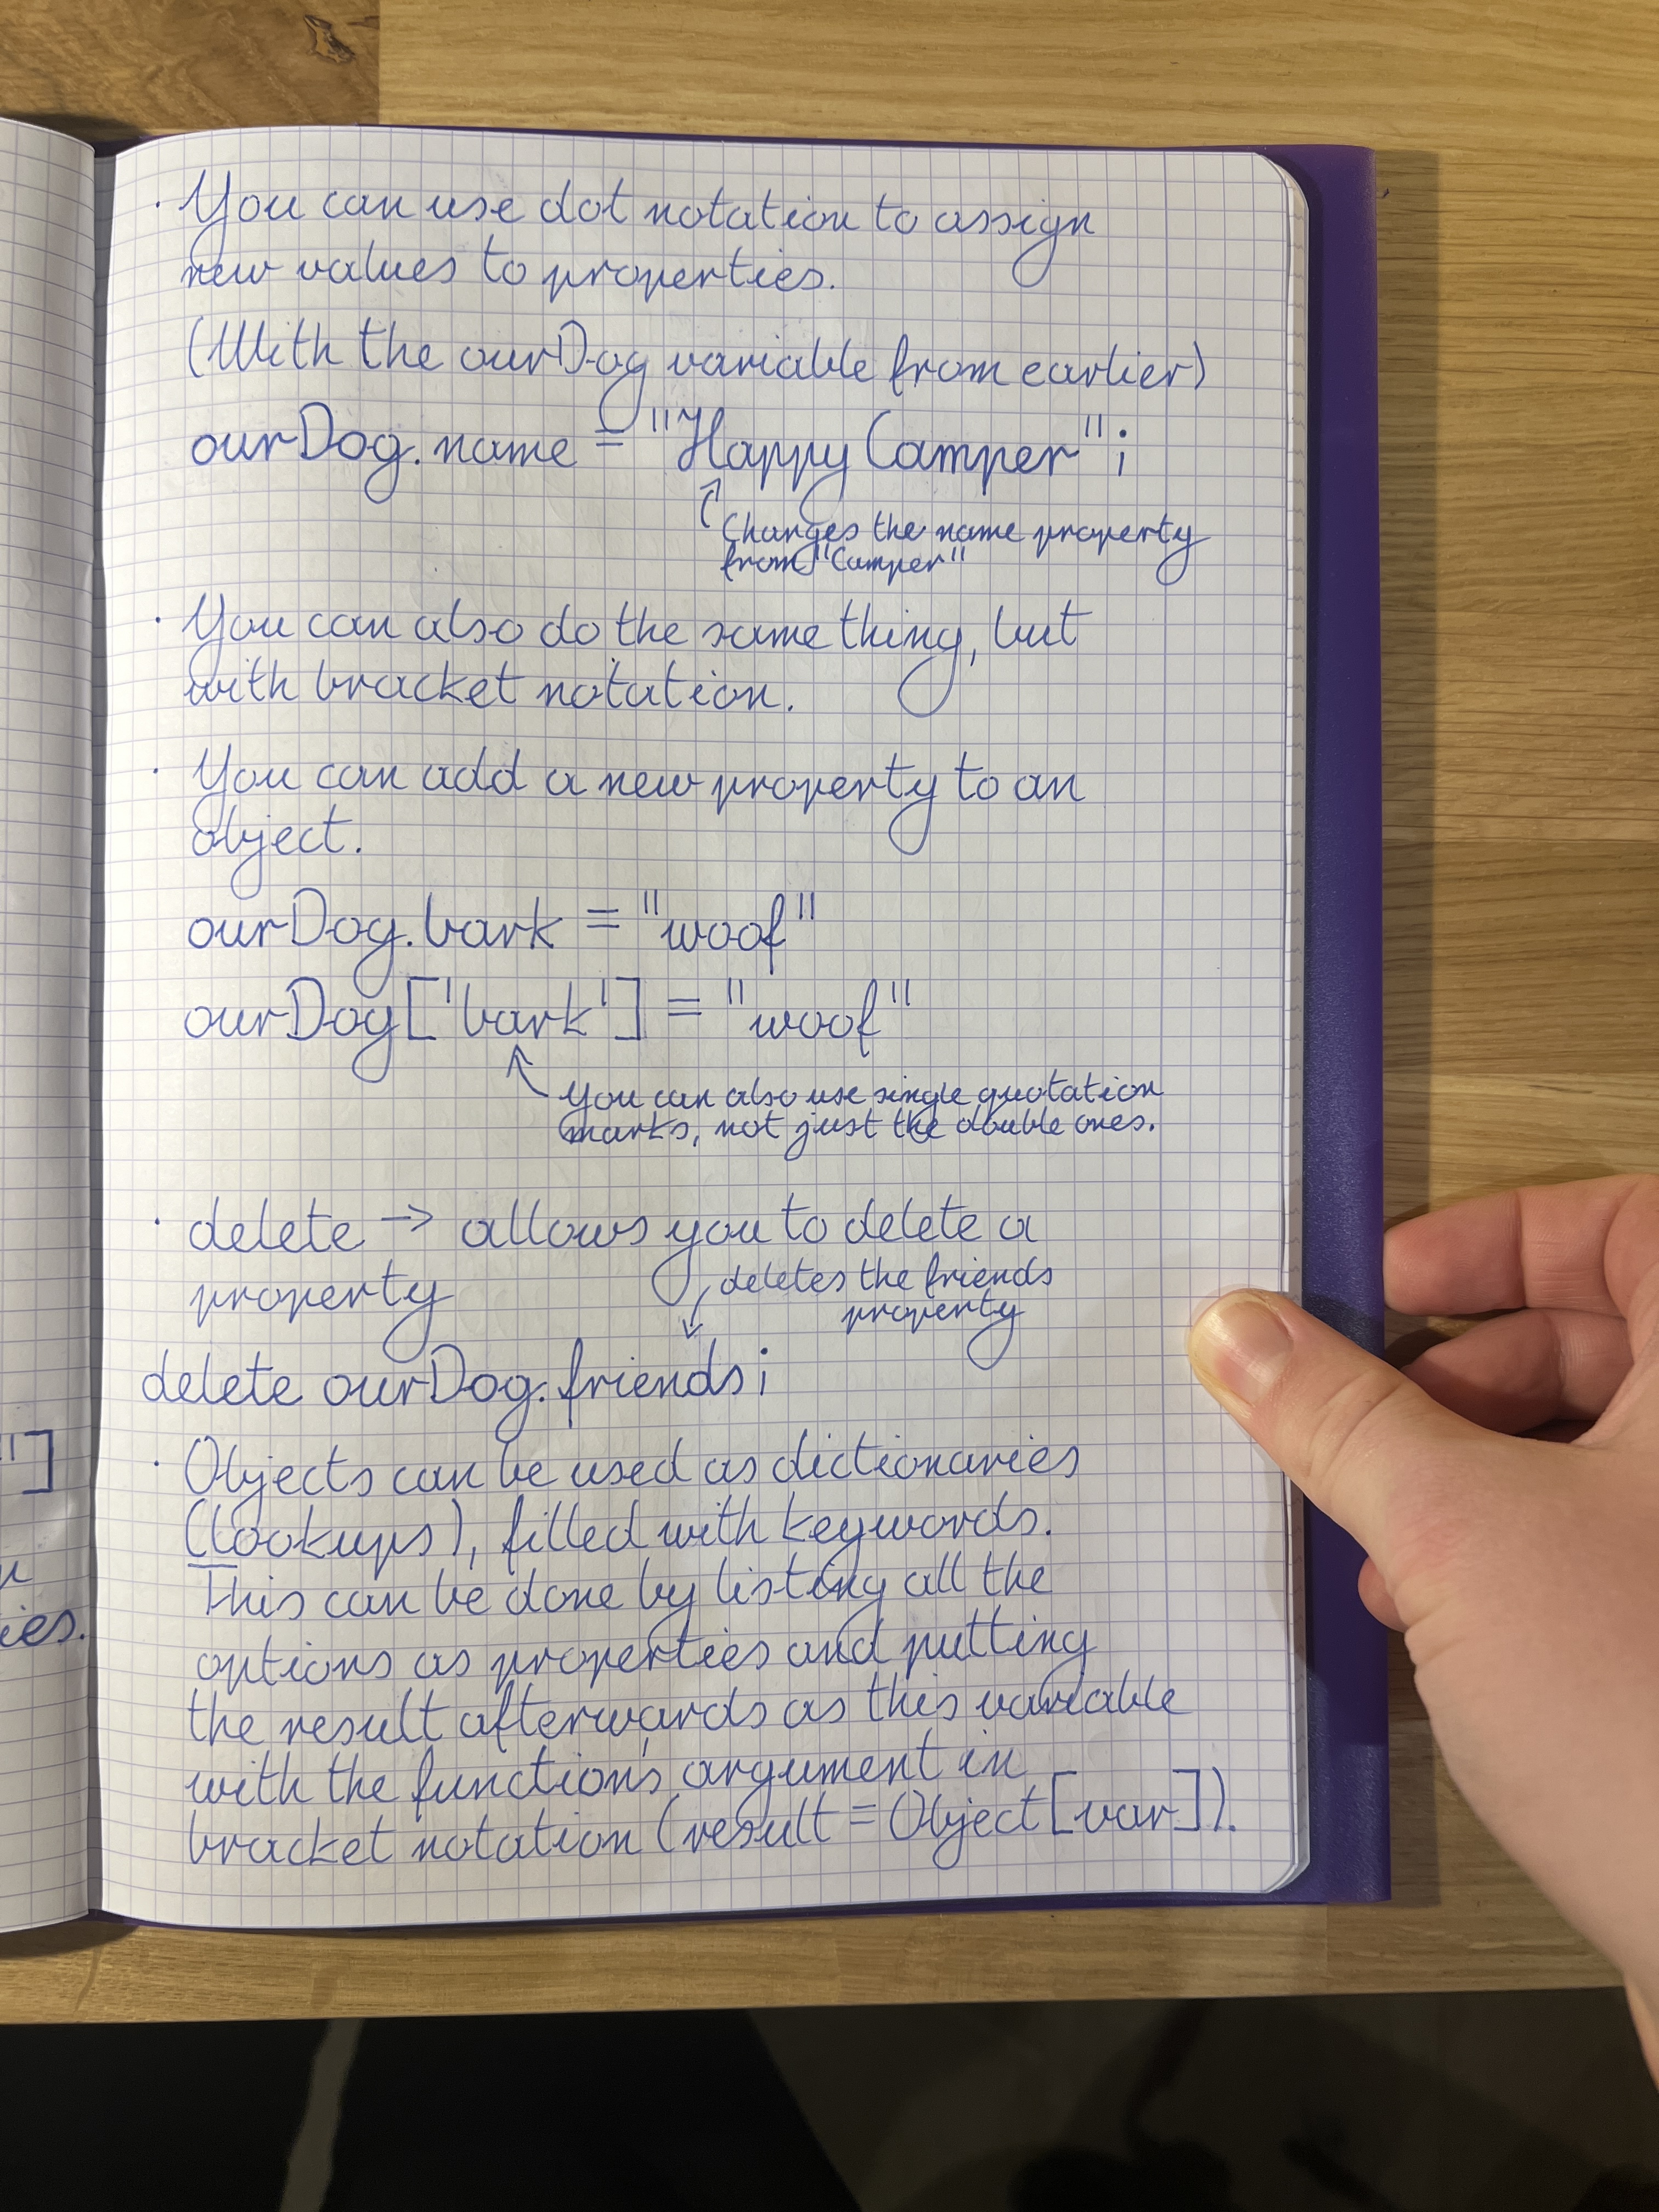 "]
ies.
· You can use dot notation to assign
new values to properties.
(With the ourDog variable from earlier)
ourDog.name = "Happy Camper";
Changes the name property
from "Camper"
· You can also do the same thing, but
with bracket notation.
· You can add a new property to an
object.
ourDog.bark = "woof"
ourDog['bark'] = "woof"
You can also use single quotation
marks, not just the double ones.
· delete → allows you to delete a
property
deletes the friends
property
delete ourDog.friends;
· Objects can be used as dictionaries
(lookups), filled with keywords.
This can be done by listing all the
options as properties and putting
the result afterwards as this variable
with the function's argument in
bracket notation (result = Object[var]).